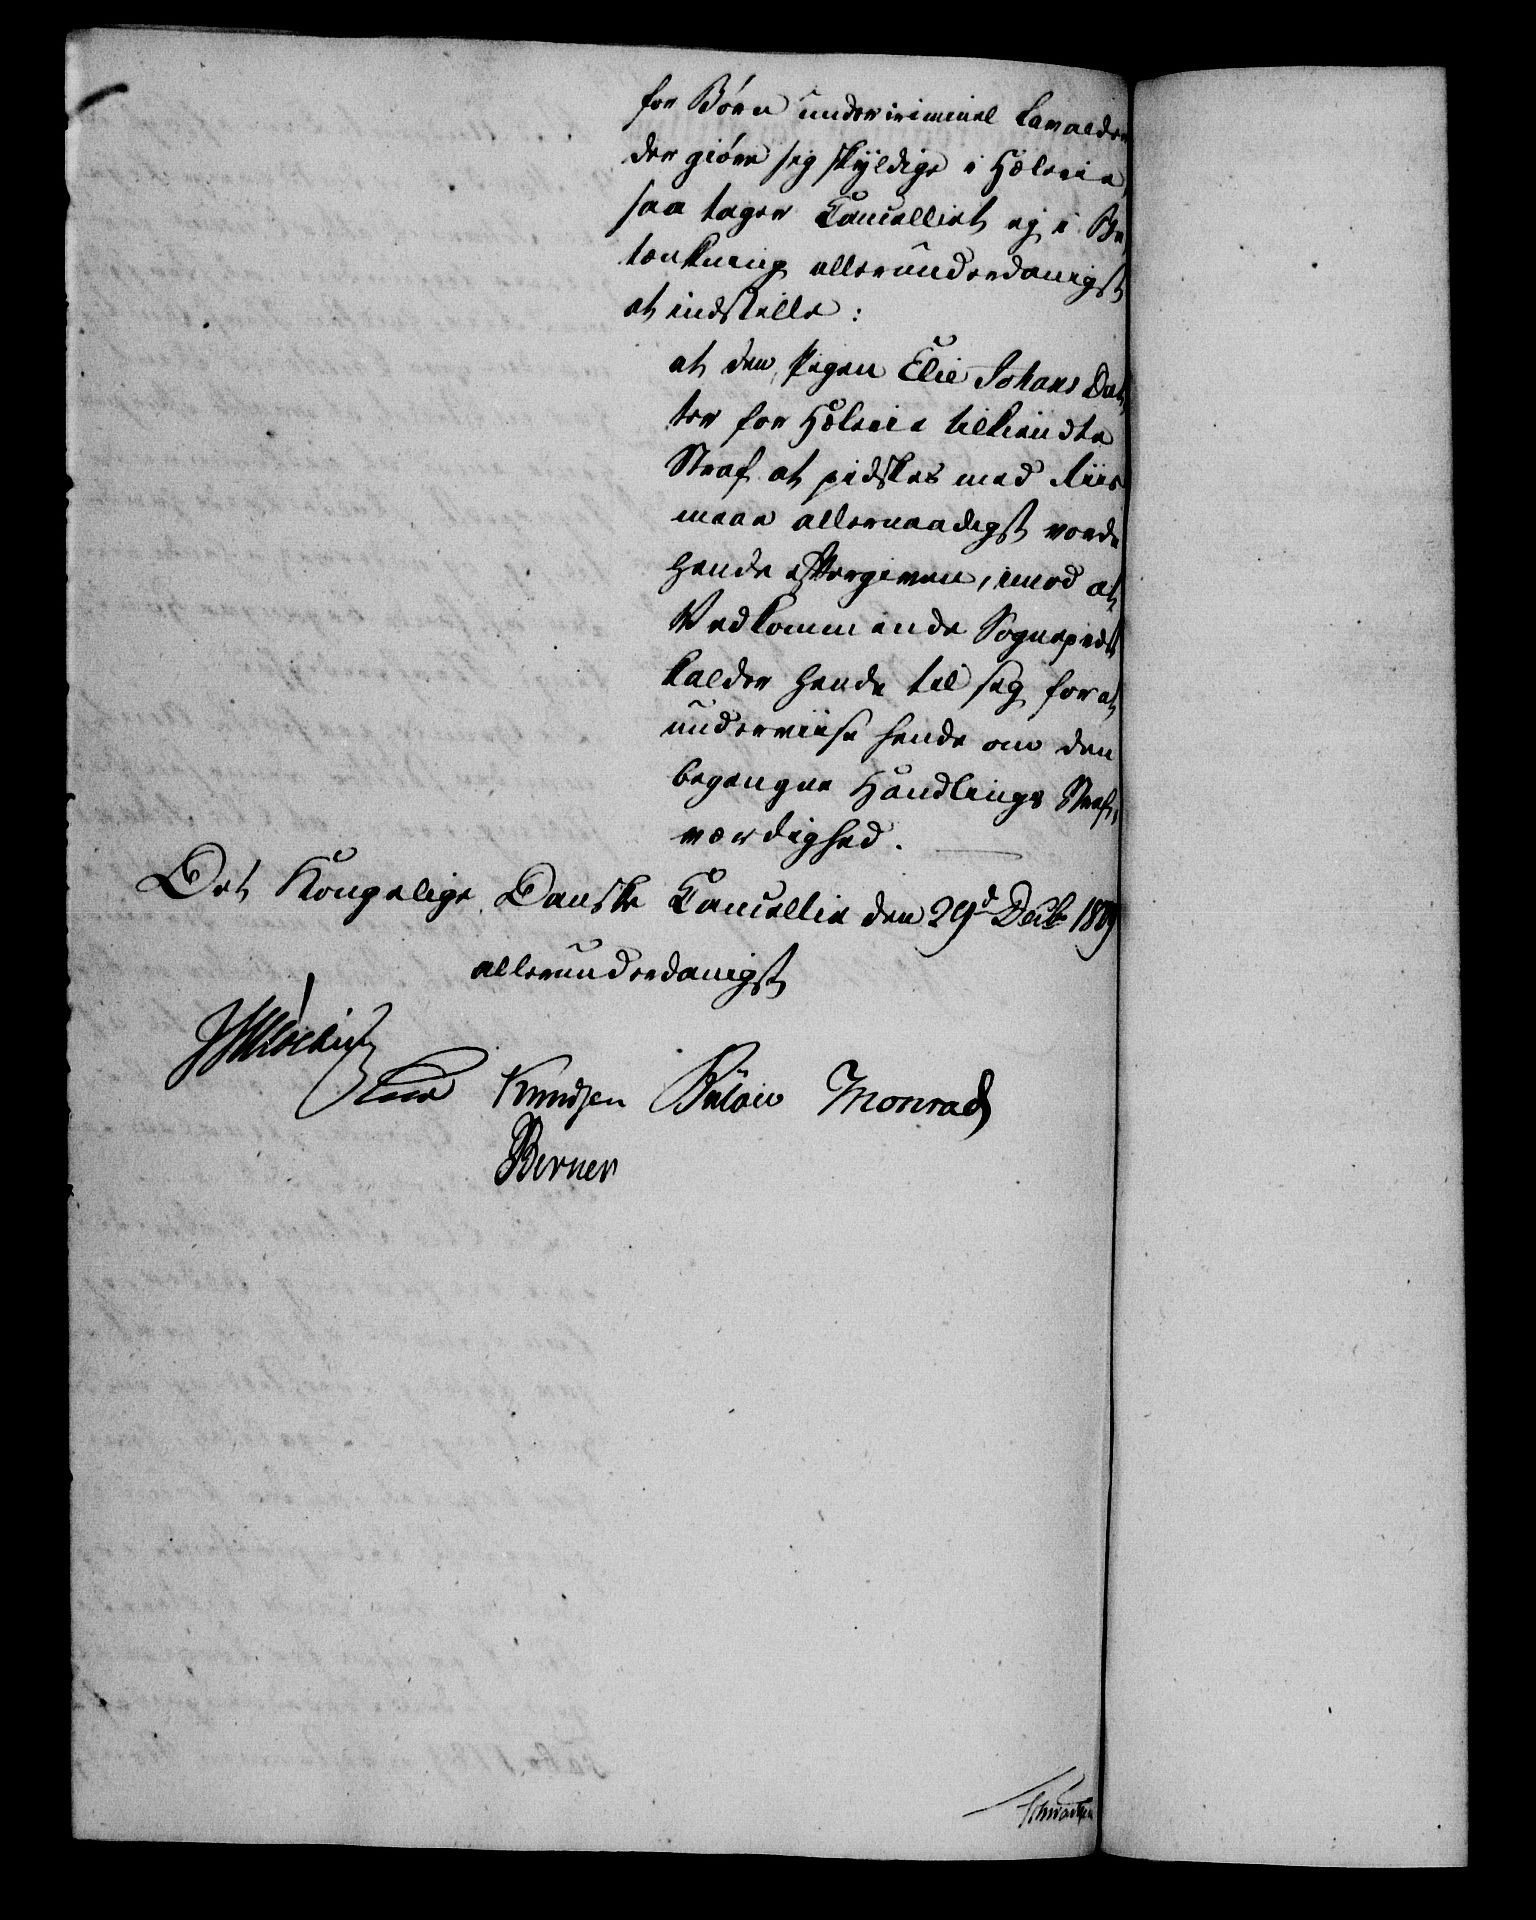 for Børn under criminel Lavalder
der giøre sig skyldige i Hælerie,
saa tager Cancelliet ej i Be,
tænkning allerunderdanigst
at indstille:
at den Pigen Elie Johans Dat,
ter for Hælerie tilkiendte
Straf at pidskes med Riis
maae allernaadigst vorde
hende eftergiven, imod at
Vedkommende Sognepræst
kalder hende til sig for at
underviise hende om den
begangne Handlings Straf,
værdighed.
Det Kongelige Danske Cancellie den 29d Decbr 1809
allerunderdanigst
Knudsen Bülow Monrad
Berner